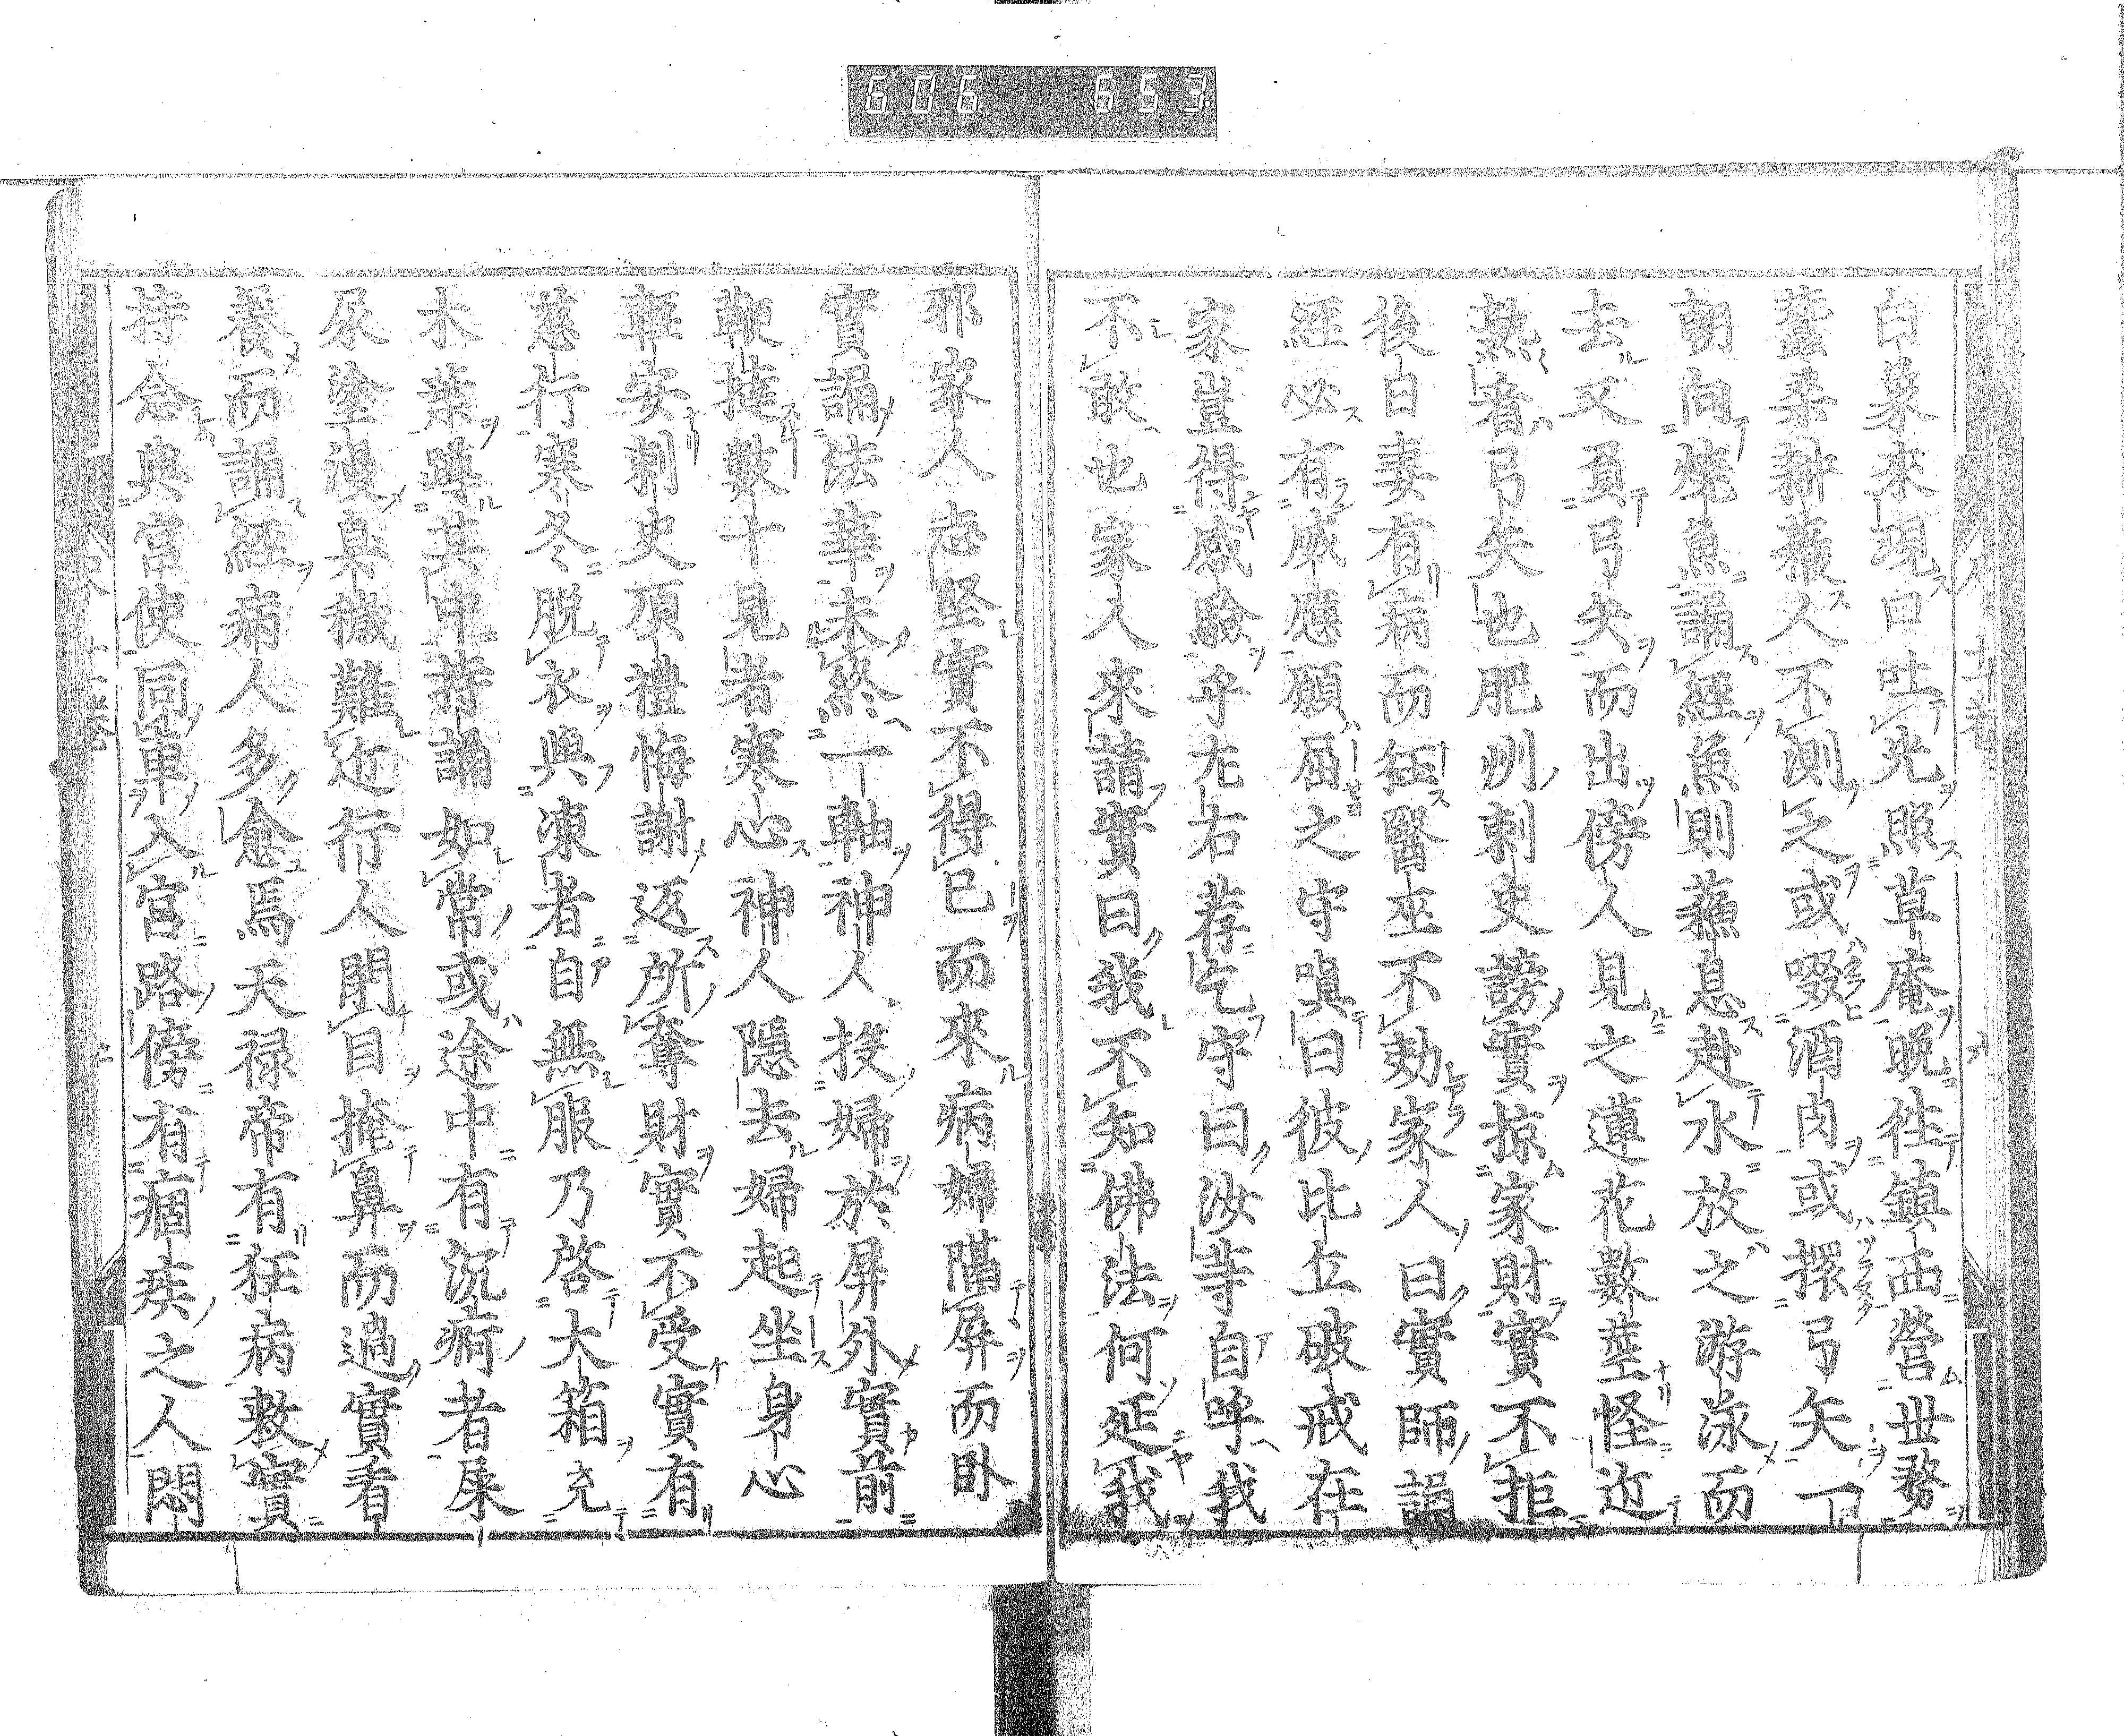 606 653
白象來現口吐光照草庵晚往鎮西營世務
蠶桑耕穫人不測之或啜酒肉或擐弓矢一
朝向燒魚誦經魚則蘇息赴水放之游泳而
去又負弓矢而出傍人見之蓮花數莖怪近
熟者弓矢也肥州刺史謗實掠家財實不拒
後白妻有病而狂醫巫不効家人曰實師誦
經必有威應願屈之守嗔曰彼比丘破戒在
家豈得感驗乎左右荐乞守曰汝等自呼我
不敢也家人來請實曰我不知佛法何延我
邪家人志堅實不得已而來病婦隔屏而臥
實誦法華未終一軸神人投婦於屏外實前
鞭撻數十見者寒心神人隱去婦起坐身心
輕安刺史頂禮悔謝返所奪財實不受實有
慈行寒冬脫衣與凍者自無服乃啓大箱充
木葉蹲其中持誦如常或途中有沉痾者屎
尿塗漫臭穢難近行人閉目掩鼻而過實看
養而誦經病人多愈焉天祿帝有狂病救實
持念典宮使同車入宮路傍有痼疾之人悶